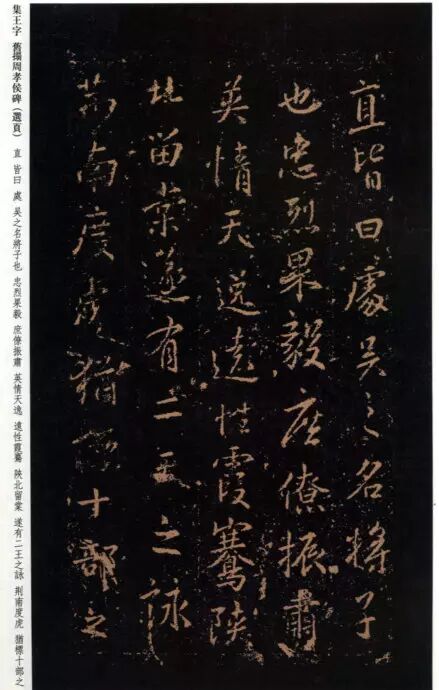 直皆曰處吳之名將子
也忠烈果毅庶僚振肅
英情天逸遠性霞騫陝
北留棠遂有二王之詠
荊南度虎猶標十部之
集王字 舊搨周孝侯碑(選頁) 直 皆曰 處 吳之名將子也 忠烈果毅 庶僚振肅 英情天逸 遠性霞騫 陝北留棠 遂有二王之詠 荊南度虎 猶標十部之